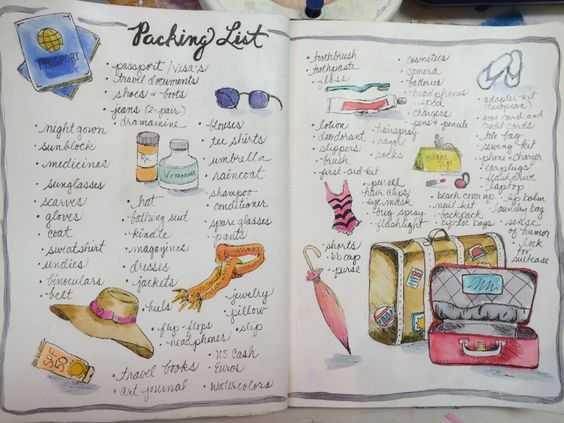 Packing List
PASSPORT
• passport/visa's
travel documents
• shoes + boots
• jeans (2-pair)
• dramamine
• night gown
• sunblock
• medicines
• sunglasses
• scarves
• gloves
coat
• sweatshirt
• undies
• binoculars
• belt
• hat
• bathing suit
• kindle
• magazines
• dresses
• jackets
• heels
• flip-flops
• headphones
• travel books
• art journal
• blouses
• tee shirts
• umbrella
• raincoat
• shampoo-
conditioner
• spare glasses
• pants
• jewelry
• pillow
• slip
• US cash
• Euros
• watercolors
Vitamins
SPF
50
• toothbrush
• toothpaste
• floss
• lotion
• deodorant
• slippers
• brush
• first-aid kit
• hairspray
• socks
• purell
• hair clips
• eye mask
• bug spray
• flashlight
• shorts
• purse
• cosmetics
• camera
• headphones
• chargers
• pens + pencils
• beach coverup
• nail kit
• backpack
• ziploc bags
• adapter-kit
• tote bag
• sewing kit
• phone + charger
• earplugs
• laptop
• lip balm
• laundry bag
• sense
of humor
• lock
for
suitcase